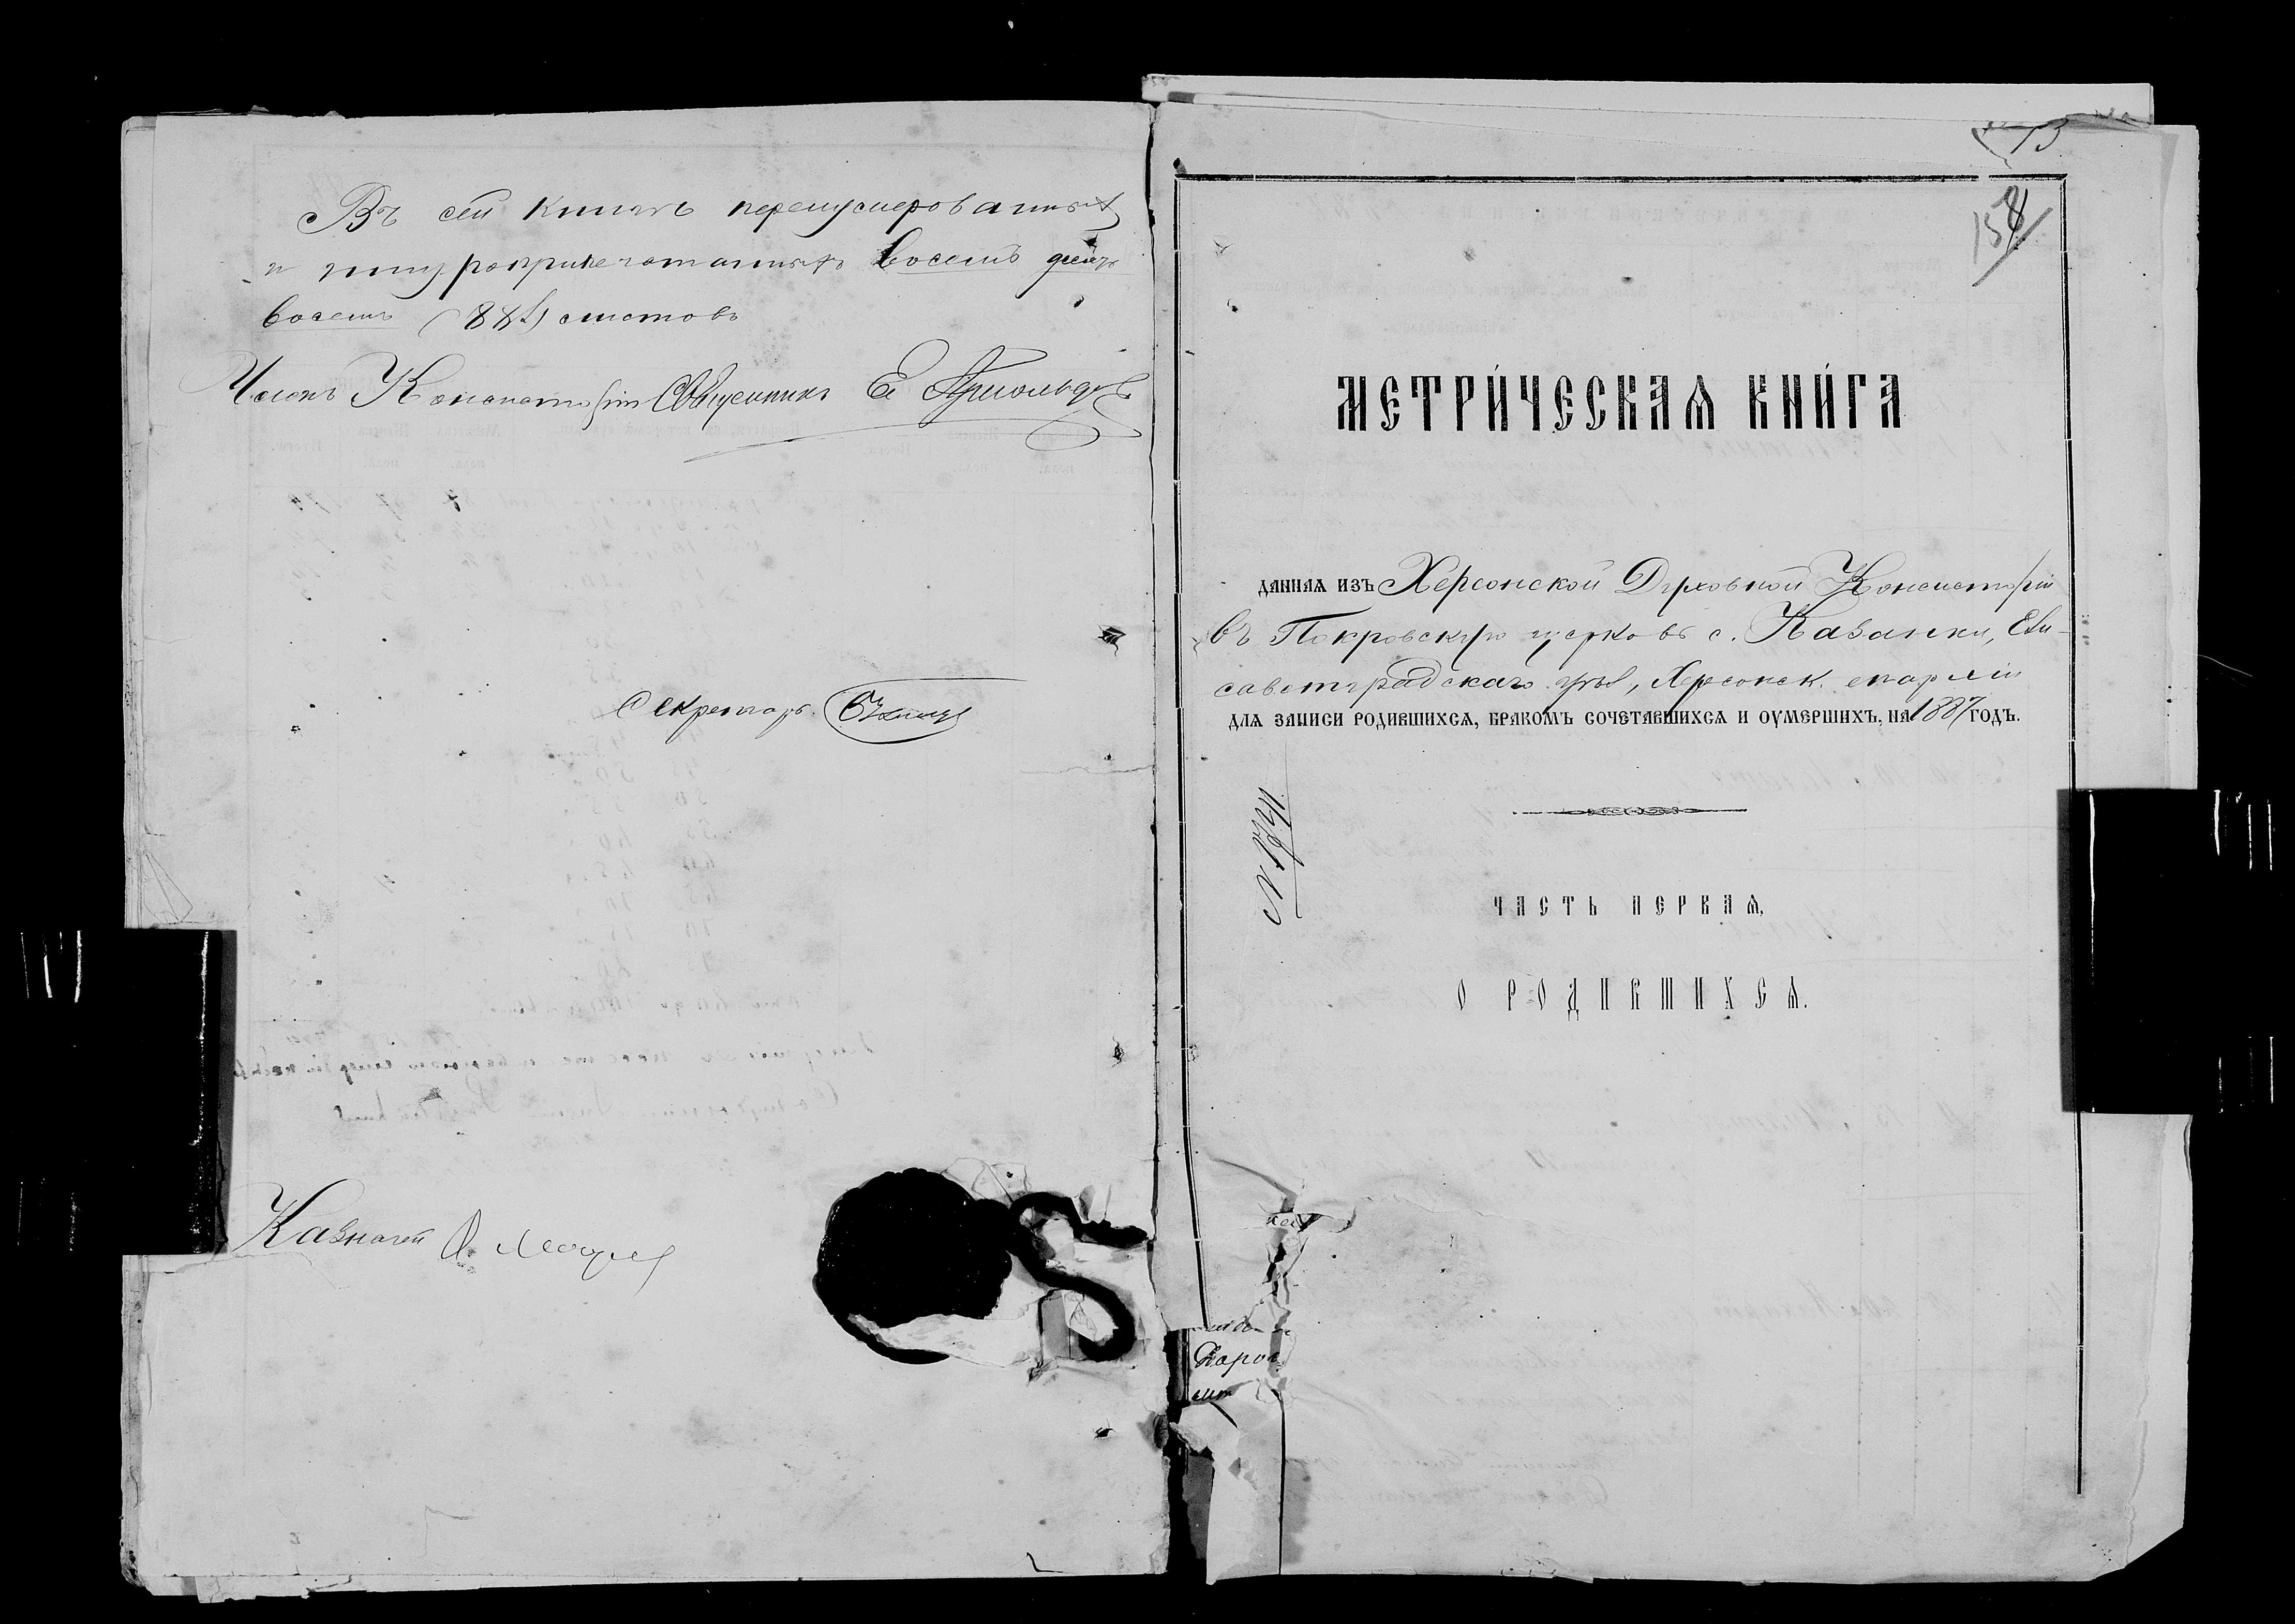 Въ сей книгѣ перенумерованныхъ
и шнуроприпечатанныхъ восемь десятъ
восемь (88) листовъ
Членъ Консисторіи Священникъ
Секретарь
Казначей
158
МЕТРИ́ЧЕСКАѦ КНИ́ГА
ДАННАѦ ИЗЪ Херсонской Духовной Консисторіи
въ Покровскую церковь с. Казанки, Ели-
саветградскаго уѣз, Херсонск. епархіи
ДЛѦ ЗАПИСИ РОДИВШИХСѦ, БРАКОМЪ СОЧЕТАВШИХСѦ И ОУМЕРШИХЪ, НА 1887 ГОДЪ.
ЧАСТЬ ПЕРВАѦ,
О РОДИВШИХСѦ.